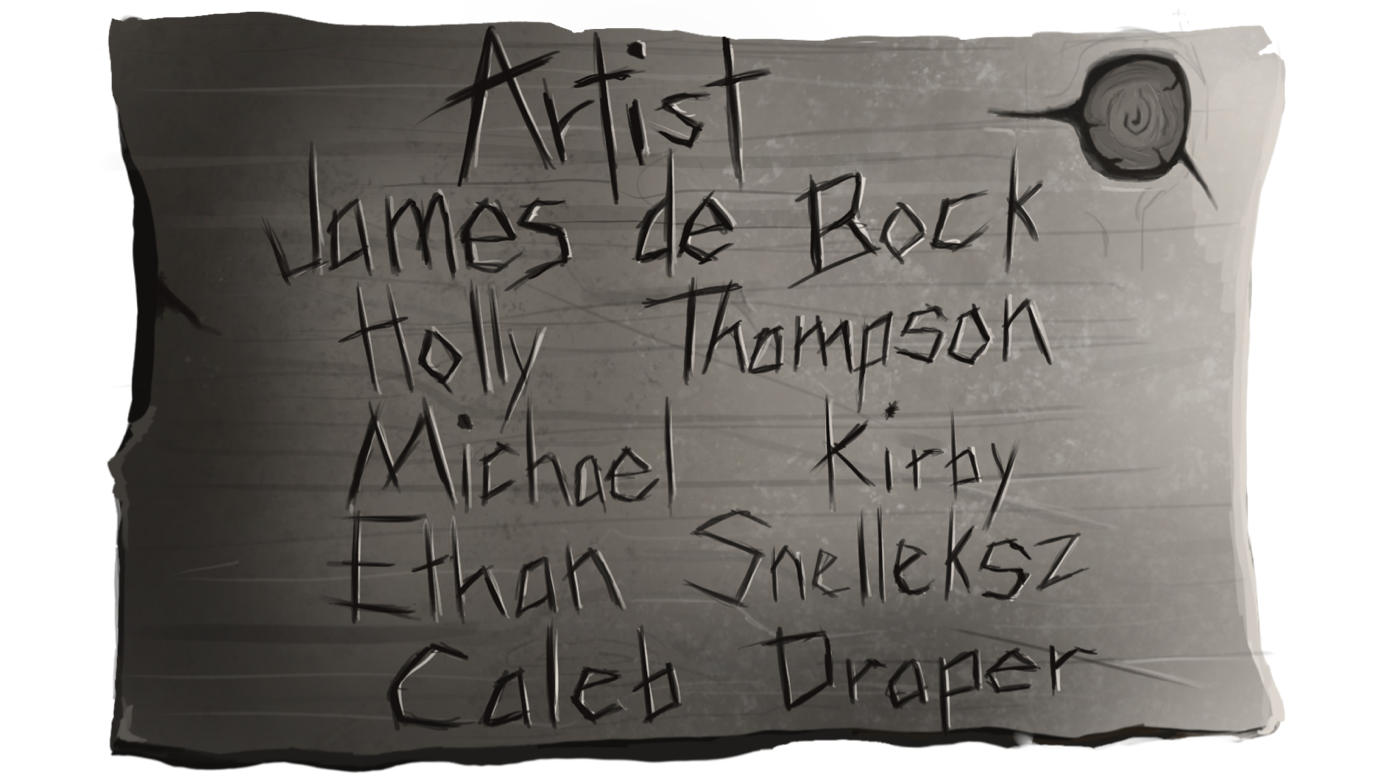 Artist
James de Bock
Holly Thompson
Michael Kirby
Ethan Snelleksz
Caleb Draper